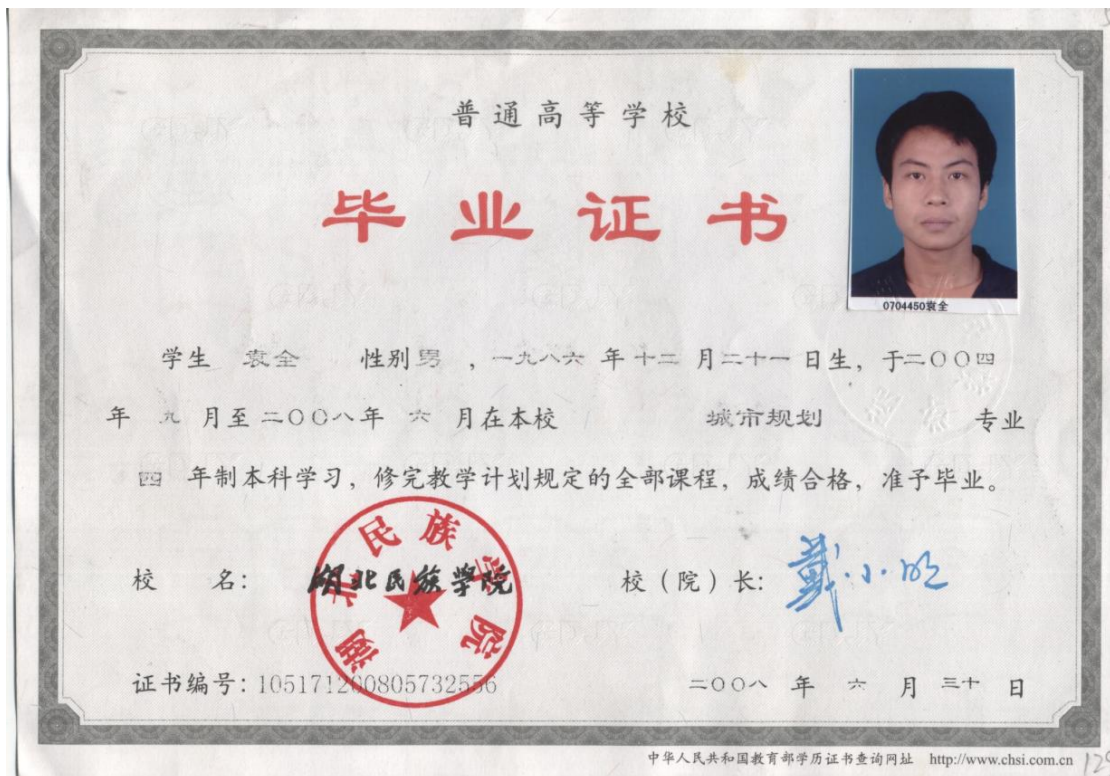 普通高等学校
毕业证书
0704450袁全
学生 袁全 性别男，一九八六年十二月二十一日生，于二〇〇四
年九月至二〇〇八年六月在本校 城市规划 专业
四年制本科学习，修完教学计划规定的全部课程，成绩合格，准予毕业。
校 名：湖北民族学院 校（院）长：戴小明
湖北民族学院
证书编号：105171200805732556 二〇〇八年六月三十日
中华人民共和国教育部学历证书查询网址 http://www.chsi.com.cn